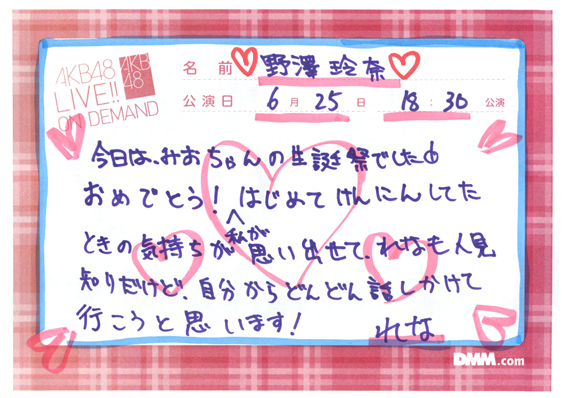 AKB48
LIVE!!
ON DEMAND
AKB
48
名前 野澤玲奈
公演日 6月25日 18:30公演
今日は、みおちゃんの生誕祭でした
おめでとう! はじめてけんにんしてた
ときの気持ちが私が思い出せて、れなも人見
知りだけど、自分からどんどん話しかけて
行こうと思います!
れな
DMM.com